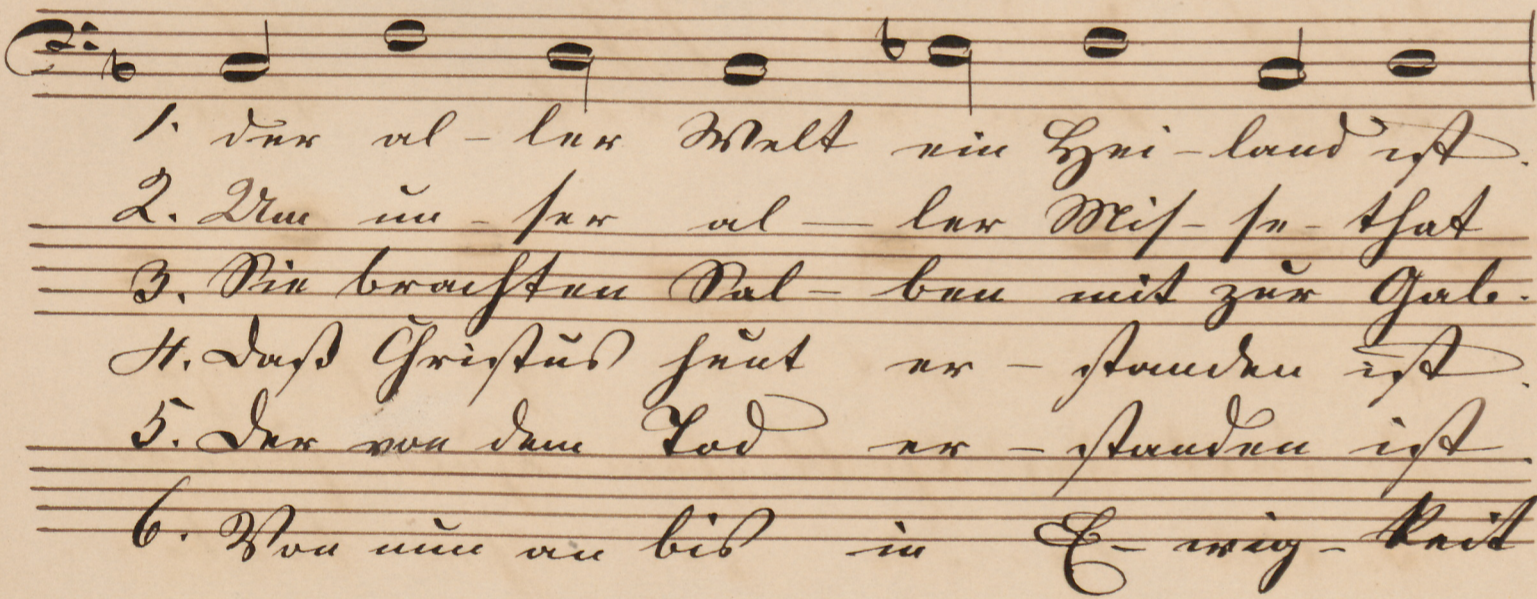 1. der al-ler Welt ein Hei-land ist.
2. Um un-ser al-ler Mis-se-that
3. Sie brachten Sal-ben mit zur Gab.
4. Daß Christus heut er-standen ist.
5. Der von dem Tod er-standen ist.
6. Von nun an bis in E-wig-keit